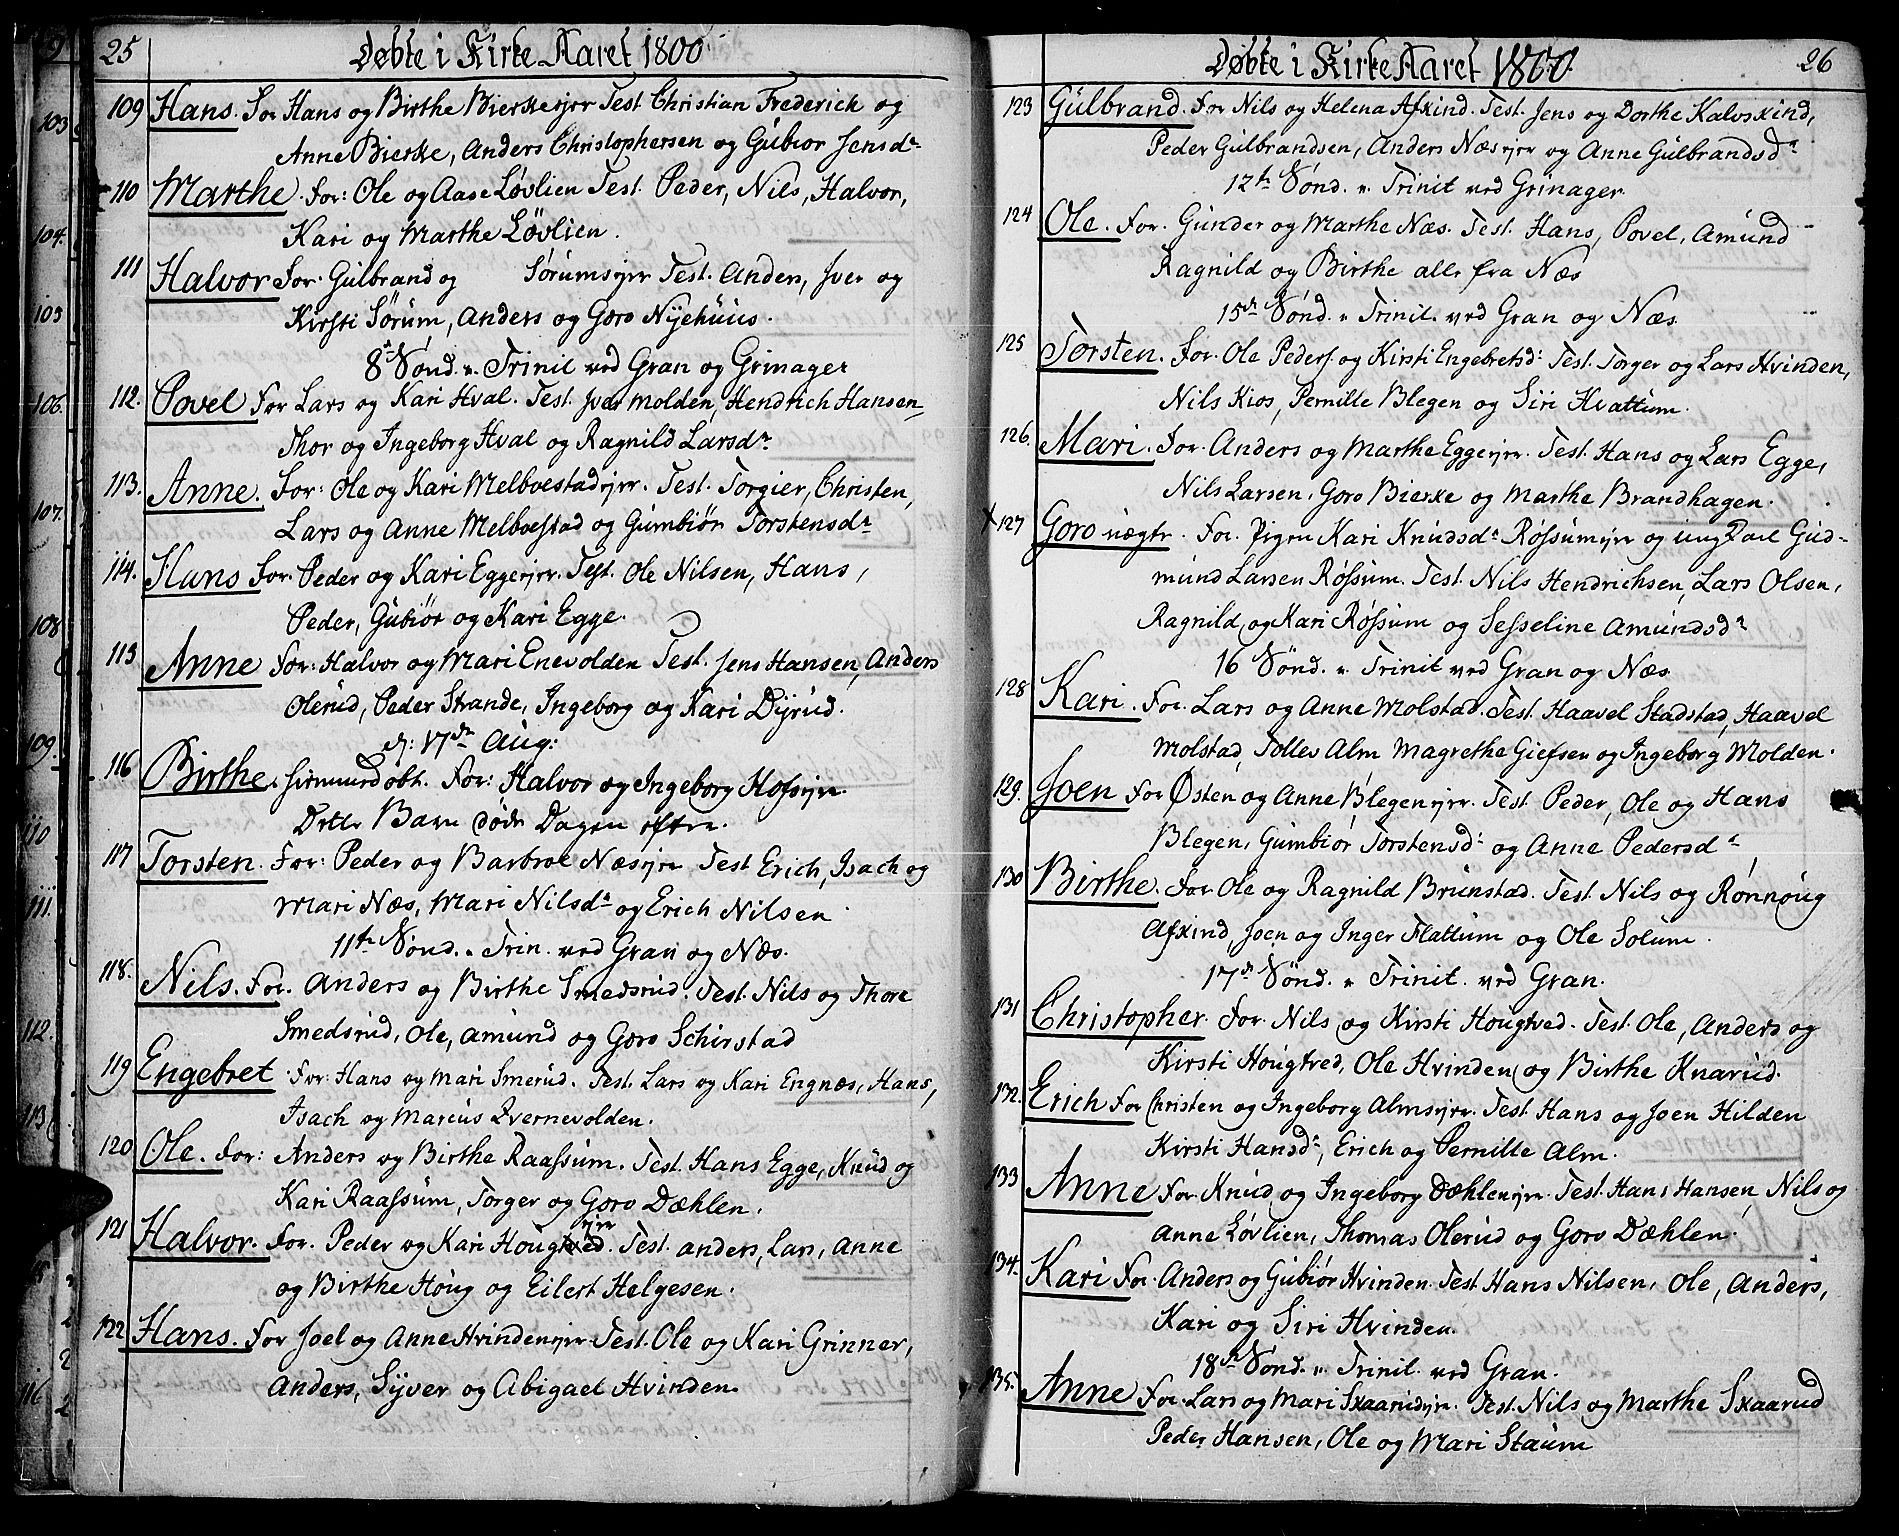 25 Døbte i Kirke Aaret 1800
109 Hans. For Hans og Birthe Bierkeejer Test Christian Frederich og
Anne Bierke, Anders Christophersen og Gubiør Jensdr
110 Marthe. For: Ole og Aase Løvlien Test. Peder, Nils, Halvor,
Kari og Marthe Løvlien.
111 Halvor For: Gulbrand og Sørumsejer Test. Anders, Iver og
Kirsti Sørum, Anders og Goro Nyehuus.
8de Sønd. " Trinit ved Gran og Grinager
112. Povel For Lars og Kari Hval. Test. Iver Molden, Hendrich Hansen,
Thor og Ingeborg Hval og Ragnild Larsdr
113. Anne. For: Ole og Kari Melboestadejer. Test. Torgier, Christen,
Lars og Anne Melboestad og Gumbiør Torstensdr
114. Hans For. Peder og Kari Eggeejer. Test. Ole Nilsen, Hans,
Peder, Gubiør og Kari Egge.
115 Anne For: Halvor og Mari Enevolden Test. Jens Hansen, Anders
Olerud, Peder Strande, Ingeborg og Kari Dyrud.
d: 17de Aug:
116 Birthe. hiemmedøbt. For: Halvor og Ingeborg Hofsejer.
Dette Barn døde Dagen efter.
117 Torsten. For: Peder og Barbroe Næsejer Test Erich, Isach og
Mari Næs, Mari Nilsdr og Erich Nilsen
11te Sønd. " Trin. ved Gran og Næs.
118. Nils. For. Anders og Birthe Smedsrud. Test. Nils og Thore
Smedsrud, Ole, Amund og Goro Schirstad
119 Engebret For: Hans og Mari Smerud. Test. Lars og Kari Engnæs, Hans,
Isach og Marcus Qvernevolden.
120 Ole. For: Anders og Birthe Raassum. Test. Hans Egge, Knud og
Kari Raassum, Torger og Goro Dæhlen.
121 Halvor. For. Peder og Kari Hougejer. Test. Anders, Lars, Anne
og Birthe Houg og Eilert Helgesen.
122 Hans. For Joel og Anne Hvindenejer. Test. Ole og Kari Grinner,
Anders, Syver og Abigael Hvinden.
Døbte i Kirke Aaret 1800. 26
123 Gulbrand. For Nils og Helena Afkind. Test. Jens og Dorthe Kalvskind,
Peder Gulbrandsen, Anders Næsejer og Anne Gulbrandsdr
12te Sønd. " Trinit ved Grinager
124 Ole. For. Gunder og Marthe Næs. Test. Hans, Povel, Amund
Ragnild og Birthe alle fra Næs
15de Sønd. " Trinit. ved Gran og Næs
125 Torsten. For. Ole Peders. og Kirsti Engebretsdr Test. Torger og Lars Hvinden,
Nils Kios, Pernille Blegen og Siri Hvattum.
126. Mari. For. Anders og Marthe Eggeejer. Test. Hans og Lars Egge,
Nils Larsen, Goro Bierke og Marthe Brandhagen.
x127 Goro uægte. For. Pigen Kari Knudsdr Røssumejer og ung Karl Gud-
mund Larsen Røssum. Test. Nils Hendrichsen, Lars Olsen,
Ragnild og Kari Røssum og Sesseline Amundsdr
16 Sønd. " Trinit ved Gran og Næs
128 Kari. For. Lars og Anne Molstad. Test. Haavel Stadstad, Haavel
Molstad, Tollev Alm Magrethe Giefsen og Ingeborg Molden.
129. Joen For Østen og Anne Blegenejer. Test Peder, Ole og Hans
Blegen, Gumbiør Torstensdr og Anne Pedersdr
130 Birthe. For. Ole og Ragnild Brunstad. Test. Nils og Rønnoug
Afkind, Joen og Inger Flattum og Ole Solum.
17de Sønd. " Trinit. ved Gran.
131 Christopher. For. Nils og Kirsti Hougtved. Test. Ole, Anders og
Kirsti Hougtved, Ole Hvinden og Birthe Knarud.
132. Erich For Christen og Ingeborg Almsejer. Test. Hans og Joen Hilden
Kirsti Hansdr, Erich og Pernille Alm.
133 Anne For. Knud og Ingeborg Dæhlenejer. Test. Hans Hansen, Nils og
Anne Løvlien, Thomas Olerud og Goro Dæhlen.
134. Kari For. Anders og Gubiør Hvinden Test. Hans Nilsen, Ole, Anders,
Kari og Siri Hvinden.
18de Sønd. " Trinit. ved Gran.
135. Anne For. Lars og Mari Skaarudejer. Test. Nils og Marthe Skaarud
Peder Hansen, Ole og Mari Staum